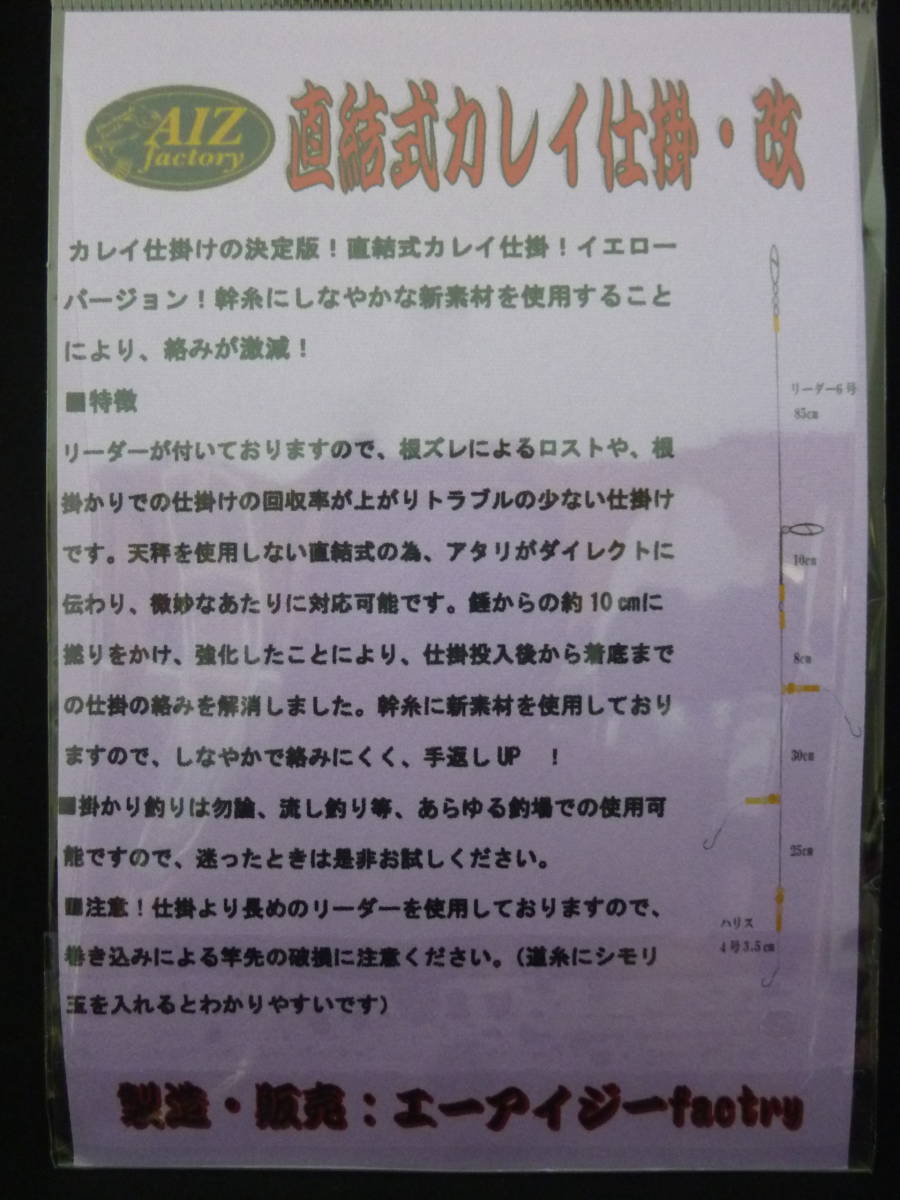 AIZ
factory
直結式カレイ仕掛・改
カレイ仕掛けの決定版！直結式カレイ仕掛！イエロー
バージョン！幹糸にしなやかな新素材を使用すること
により、絡みが激減！
■特徴
リーダーが付いておりますので、根ズレによるロストや、根
掛かりでの仕掛けの回収率が上がりトラブルの少ない仕掛け
です。天秤を使用しない直結式の為、アタリがダイレクトに
伝わり、微妙なあたりに対応可能です。錘からの約10㎝に
撚りをかけ、強化したことにより、仕掛投入後から着底まで
の仕掛の絡みを解消しました。幹糸に新素材を使用しており
ますので、しなやかで絡みにくく、手返しUP ！
■掛かり釣りは勿論、流し釣り等、あらゆる釣場での使用可
能ですので、迷ったときは是非お試しください。
■注意！仕掛より長めのリーダーを使用しておりますので、
巻き込みによる竿先の破損に注意ください。（道糸にシモリ
玉を入れるとわかりやすいです）
リーダー6号
85㎝
10㎝
8㎝
30㎝
25㎝
ハリス
4号3.5㎝
製造・販売：エーアイジーfactry